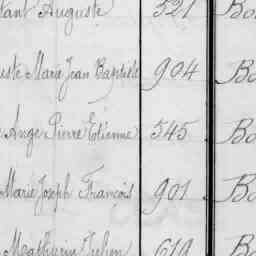 tant Auguste 521 Bo
uste Marie Jean Baptiste 904 Bo
Ange Pierre Etienne 545 Bo
Marie Joseph François 901 Bo
Mathurin Julien 619 B